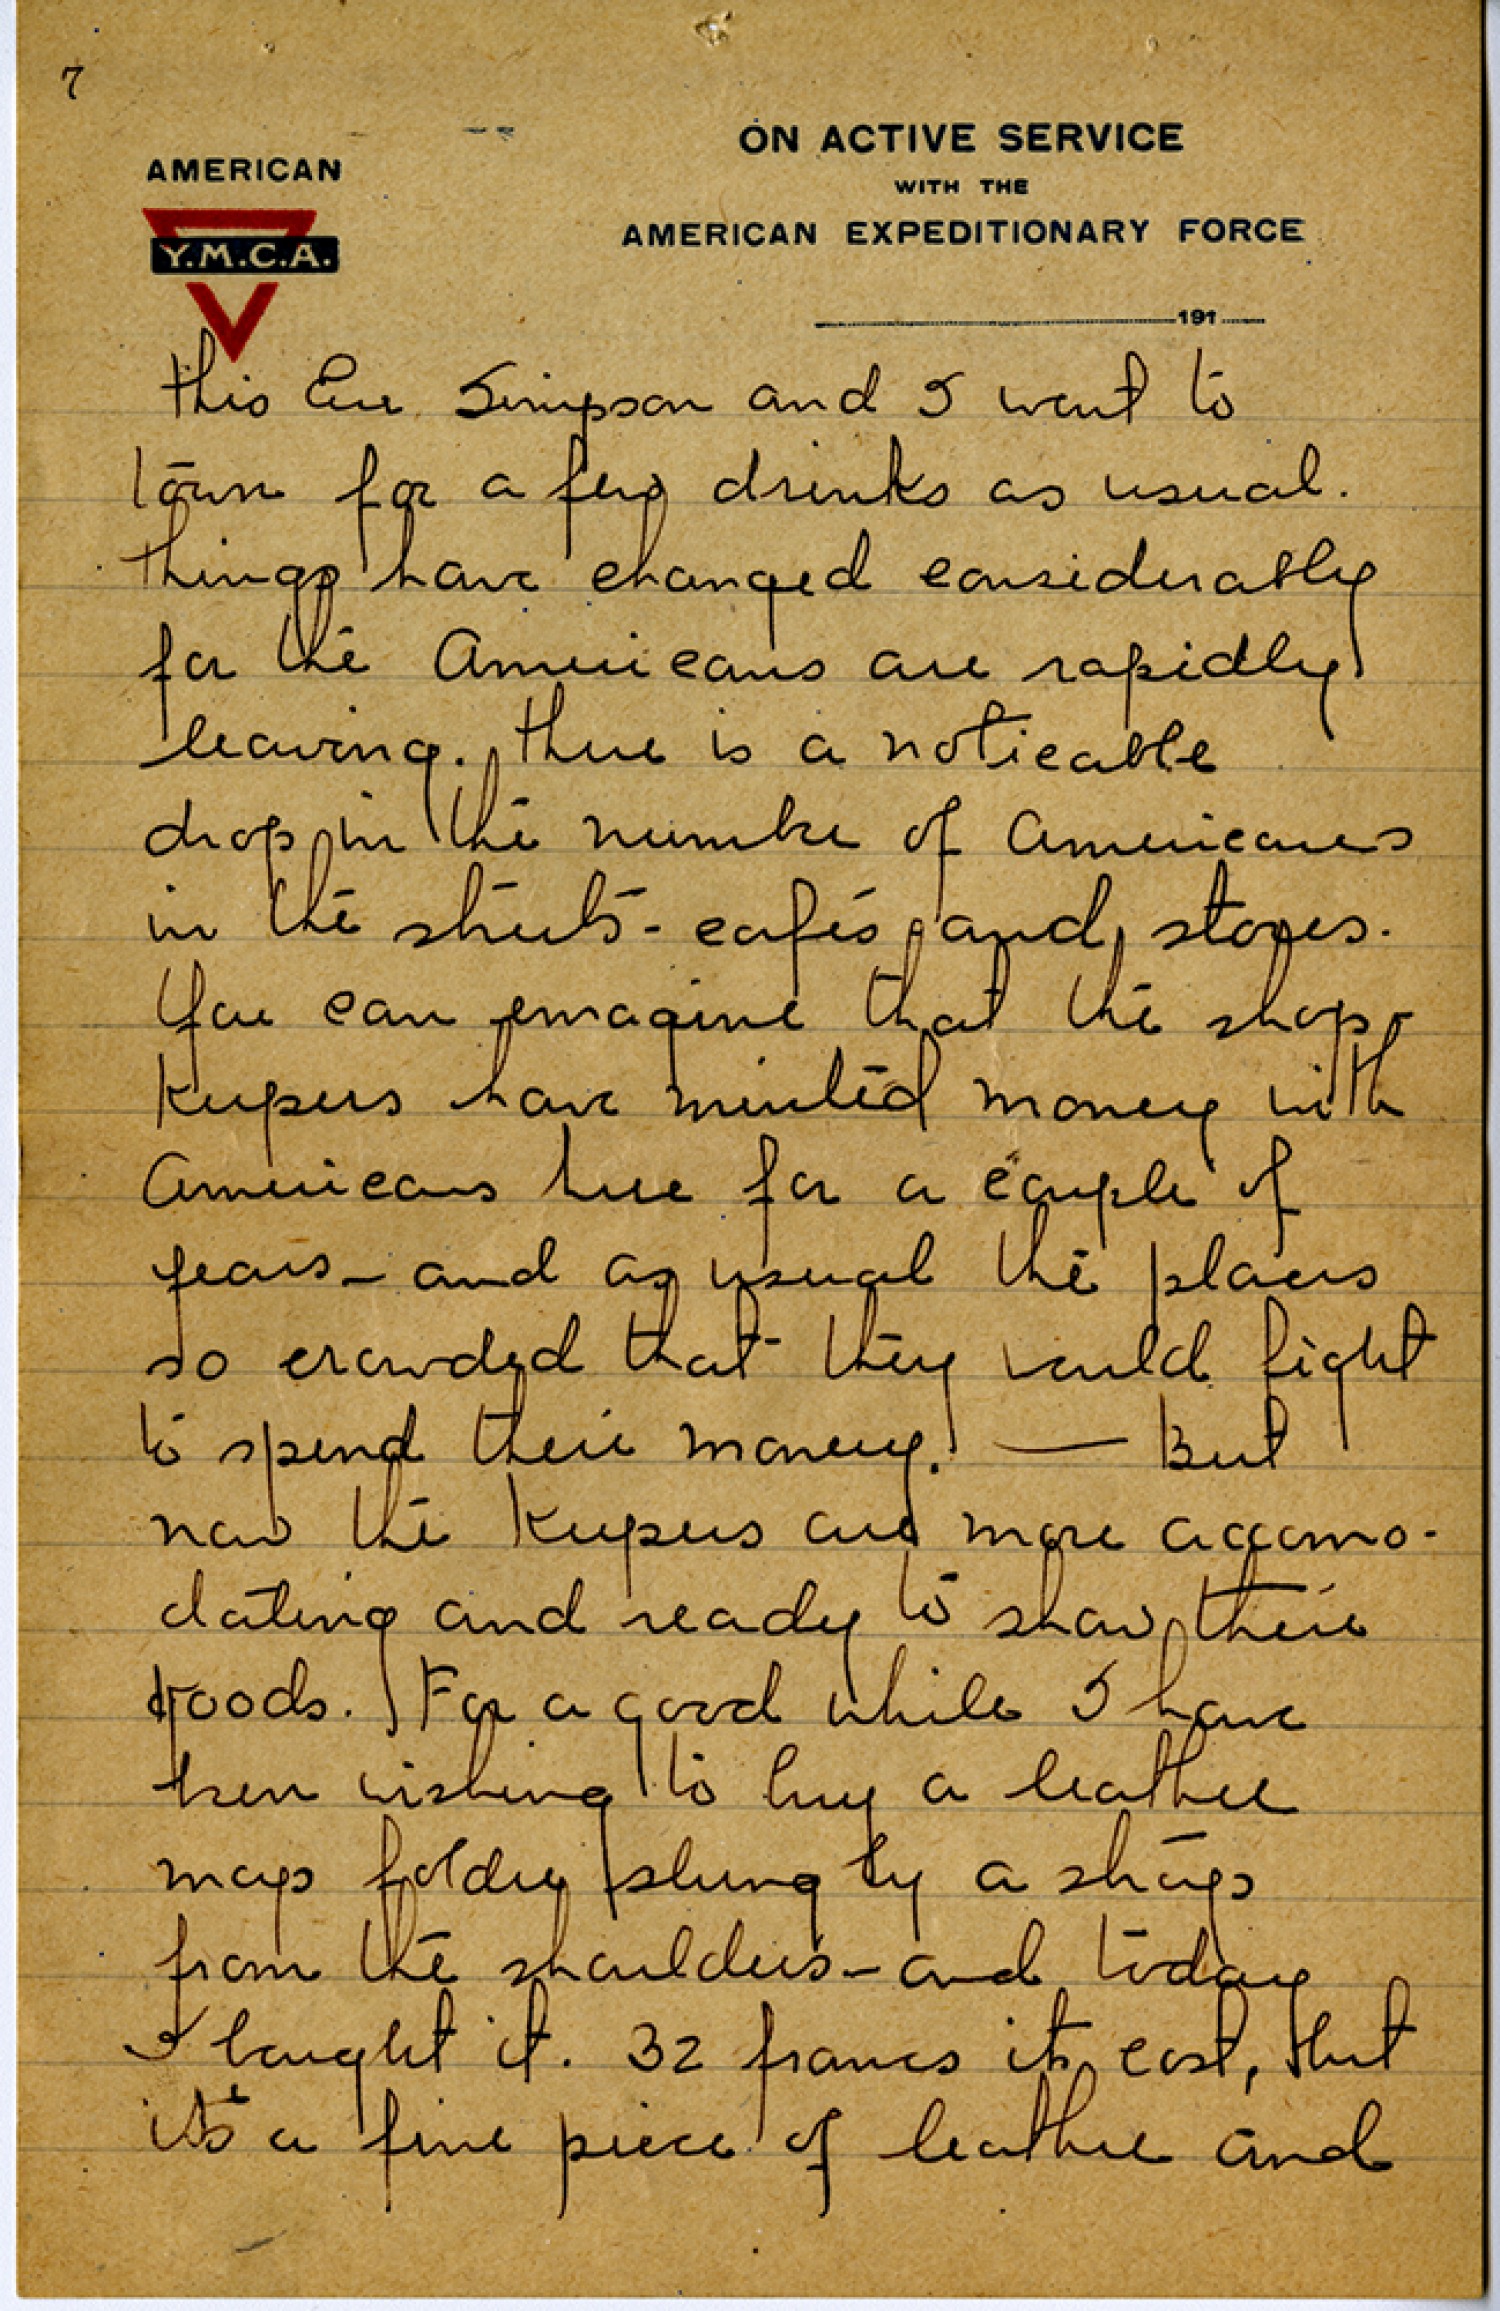 7
ON ACTIVE SERVICE
WITH THE
AMERICAN EXPEDITIONARY FORCE
AMERICAN
Y.M.C.A.
191
this Eve Simpson and I went to
town for a few drinks as usual.
things have changed considerably
for the Americans are rapidly
leaving. there is a noticable
drop in the number of Americans
in the streets - cafés and stores.
You can emagine that the shop-
Keepers have minted money with
Americans here for a couple of
years - and as usual the places
so crowded that they would fight
to spend their money. — But
now the Keepers are more accomo-
dating and ready to show their
goods. For a good while I have
been wishing to buy a leather
map folder slung by a strap
from the shoulders - and today
I bought it. 32 francs its cost, but
it's a fine piece of leather and